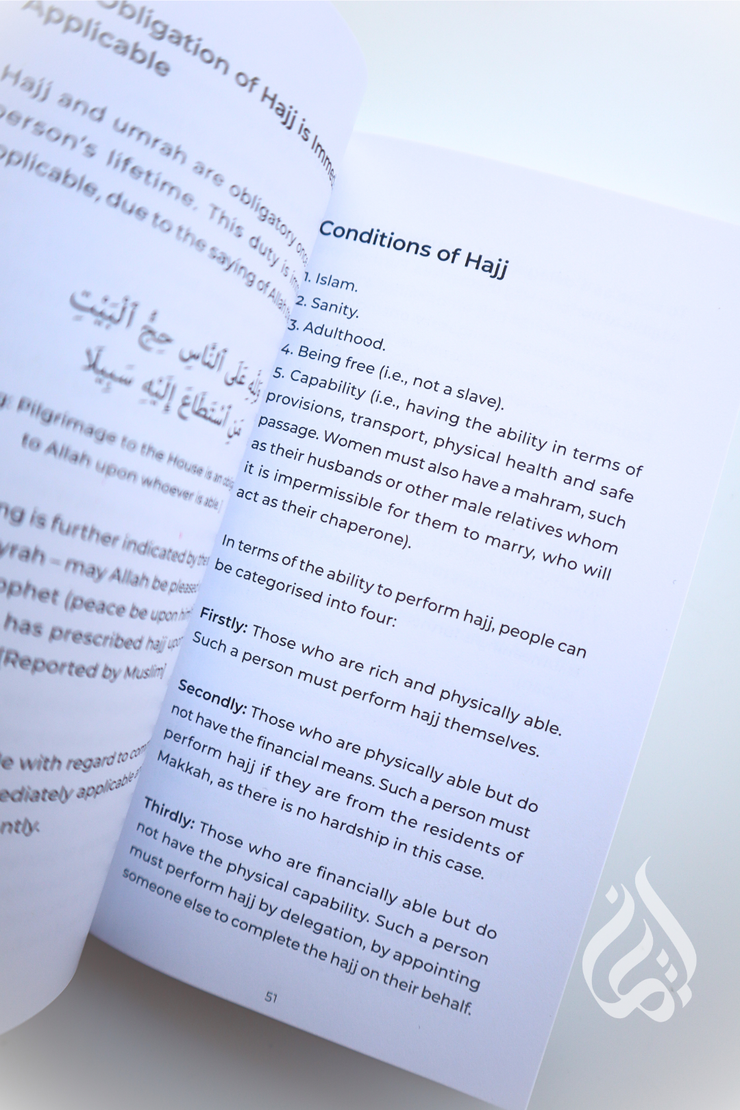 Obligation of Hajj is Imme
Applicable
Hajj and umrah are obligatory once
person's lifetime. This duty is im
pplicable, due to the saying of Allah
وَلِلَّهِ عَلَى ٱلنَّاسِ حِجُّ ٱلْبَيْتِ
مَنِ ٱسْتَطَاعَ إِلَيْهِ سَبِيلًا
g: Pilgrimage to the House is an oblig
to Allah upon whoever is able.]
ng is further indicated by the
yrah – may Allah be pleased
ophet (peace be upon him
has prescribed hajj upon
[Reported by Muslim]
le with regard to
ediately applicable
ntly.
Conditions of Hajj
1. Islam.
2. Sanity.
3. Adulthood.
4. Being free (i.e., not a slave).
5. Capability (i.e., having the ability in terms of
provisions, transport, physical health and safe
passage. Women must also have a mahram, such
as their husbands or other male relatives whom
it is impermissible for them to marry, who will
act as their chaperone).
In terms of the ability to perform hajj, people can
be categorised into four:
Firstly: Those who are rich and physically able.
Such a person must perform hajj themselves.
Secondly: Those who are physically able but do
not have the financial means. Such a person must
perform hajj if they are from the residents of
Makkah, as there is no hardship in this case.
Thirdly: Those who are financially able but do
not have the physical capability. Such a person
must perform hajj by delegation, by appointing
someone else to complete the hajj on their behalf.
51